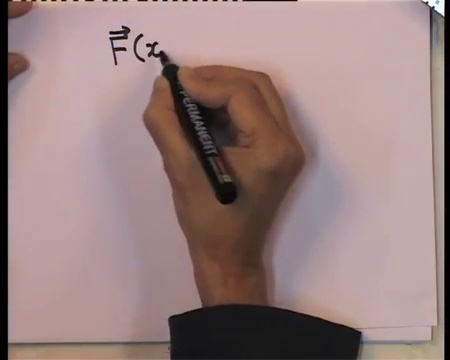 $\vec{F}(x$
PERMANENT